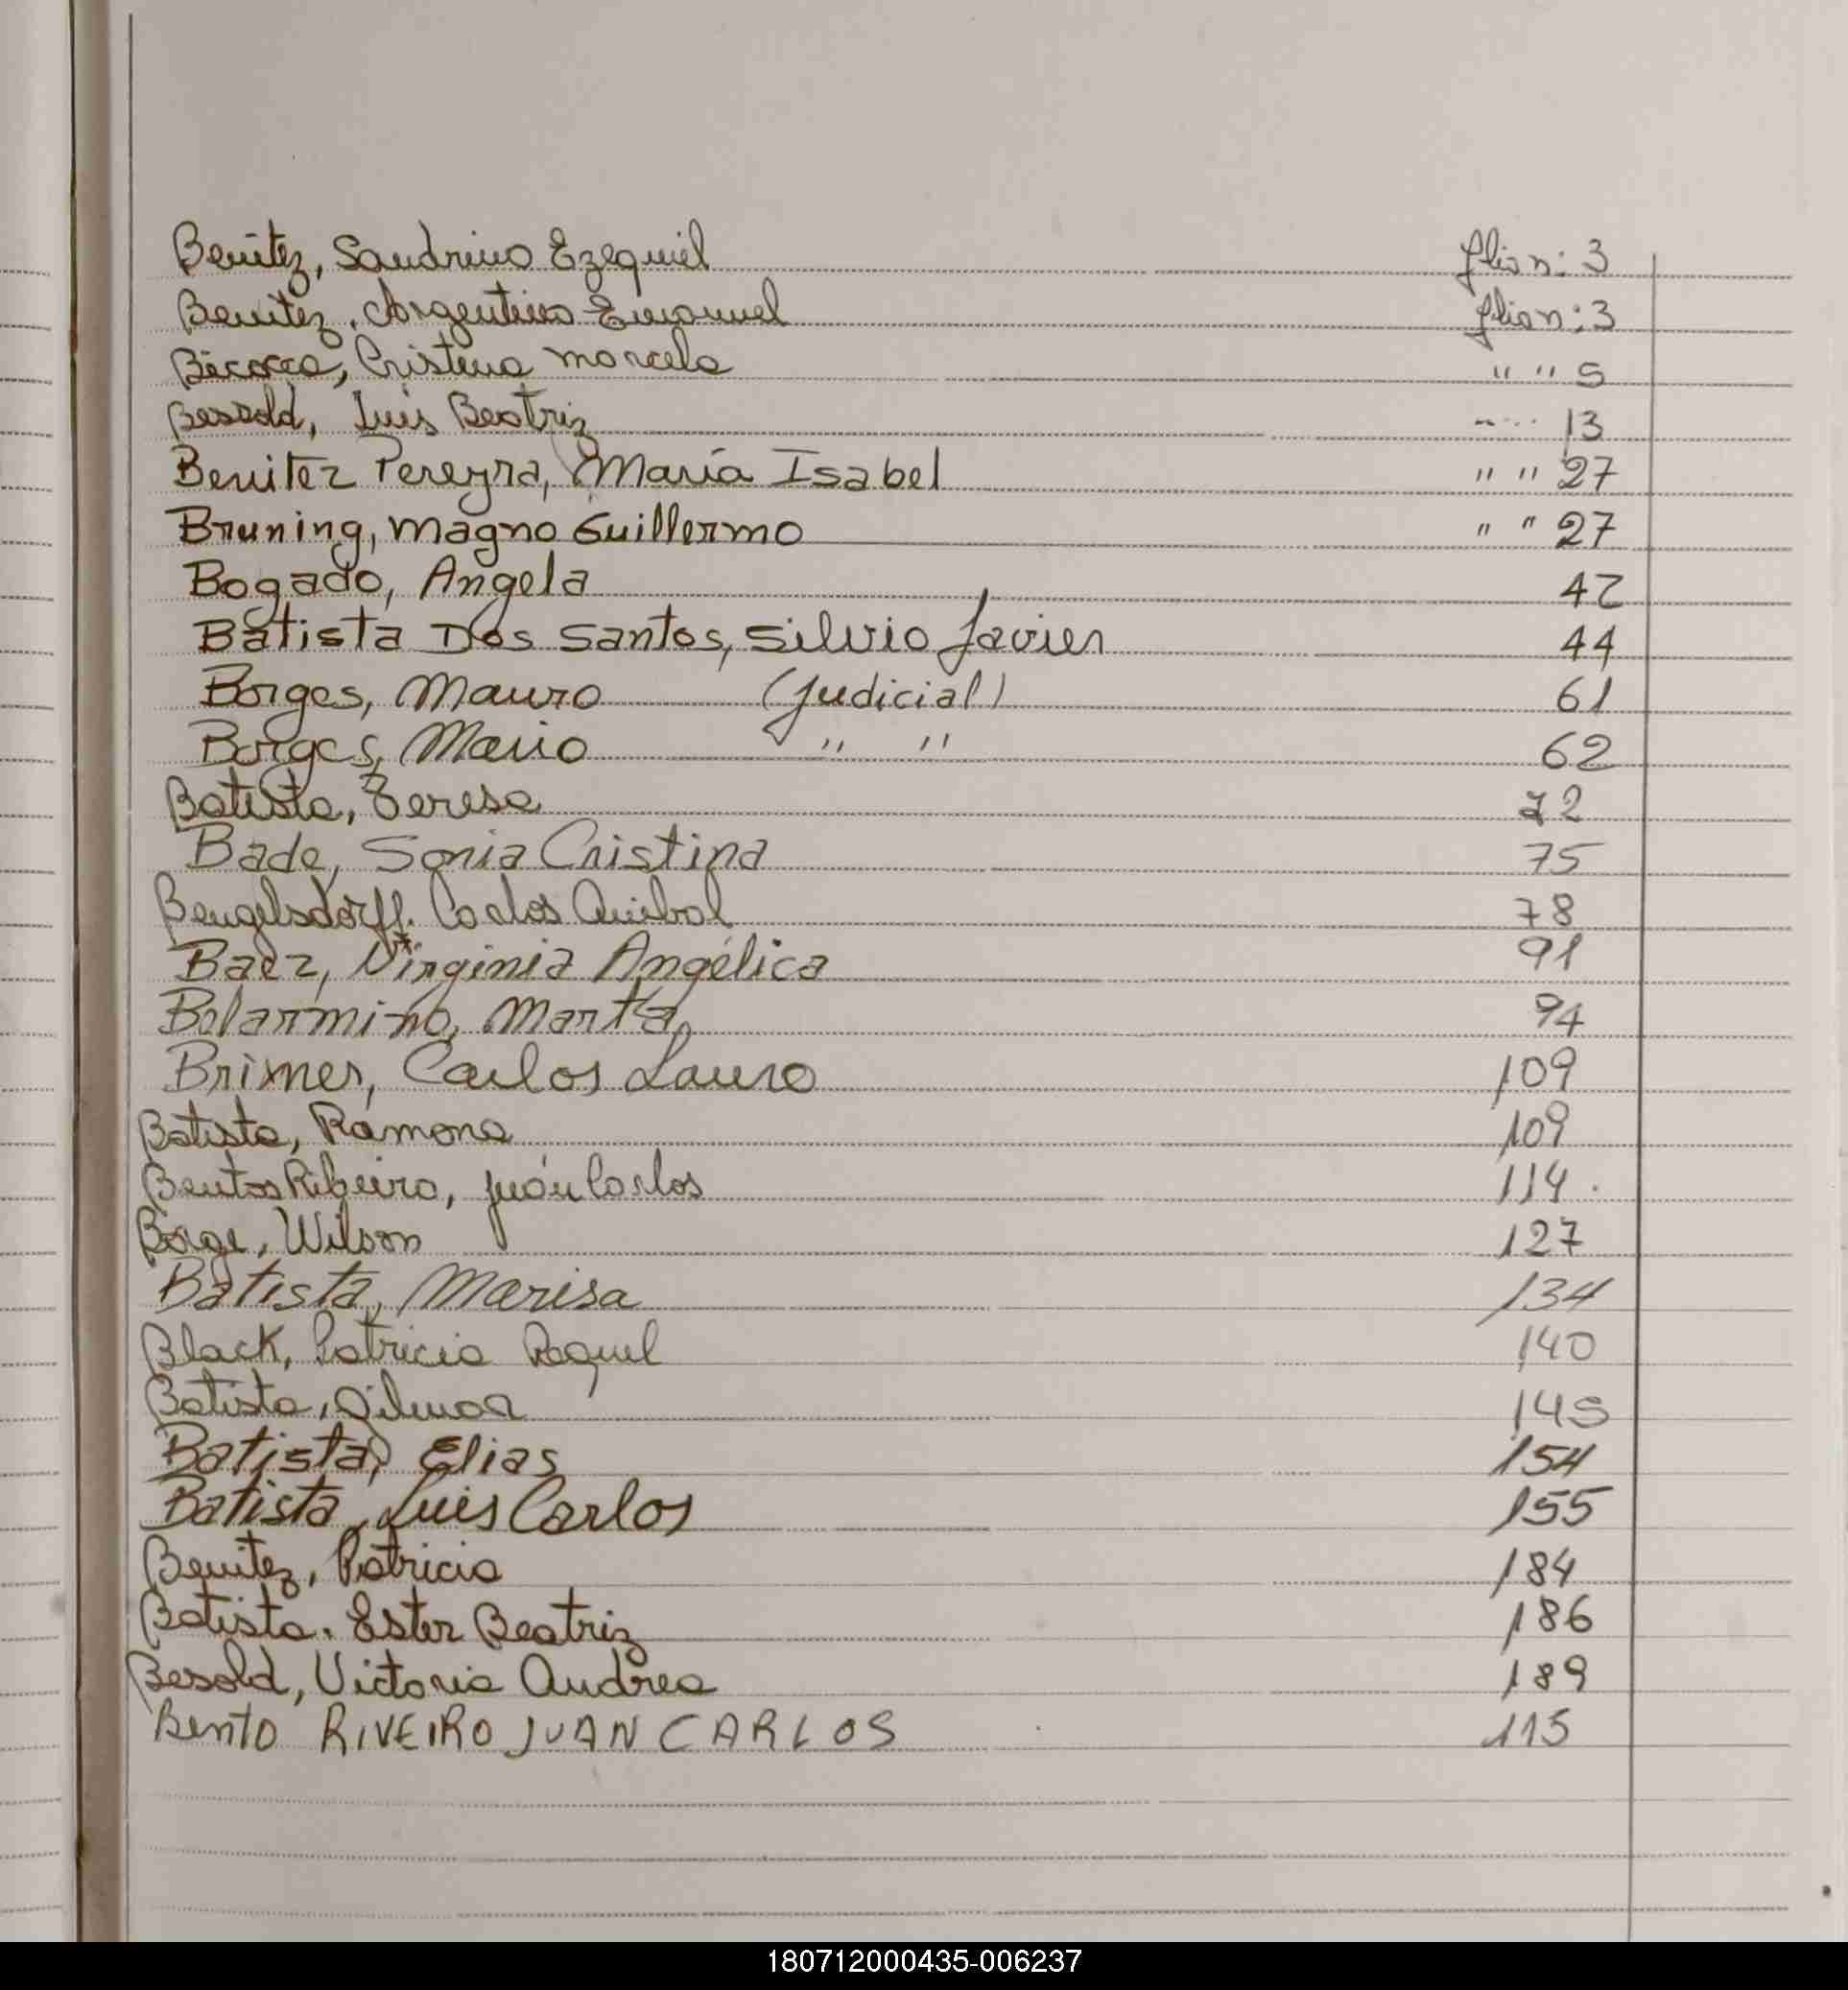 Benitez, Sandrino Ezequiel folio n: 3
Benitez, Argentino Emanuel folio n: 3
Bicocca, Cristina Marcela " " 5
Bessold, Luis Beatriz " " 13
Benitez Pereyra, Maria Isabel " " 27
Bruning, Magno Guillermo " " 27
Bogado, Angela 42
Batista Dos Santos, Silvio Javier 44
Borges, Mauro (judicial) 61
Borges, Mario " " 62
Batista, Teresa 72
Bade, Sonia Cristina 75
Bengelsdorff. Carlos Anibal 78
Baez, Virginia Angélica 91
Belarmino, Marta 94
Brimer, Carlos Lauro 109
Batista, Ramona 109
Bentos Ribeiro, Juan Carlos 114.
Borge, Wilson 127
Batista, Marisa 134
Black, Patricia Raquel 140
Batista, Gilmar 145
Batista, Elias 154
Batista, Luis Carlos 155
Benitez, Patricia 184
Batista. Ester Beatriz 186
Besold, Victoria Andrea 189
Bento RIVEIRO JUAN CARLOS 115
180712000435-006237